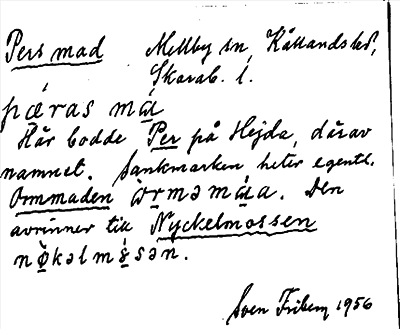 Pers mad Mellby sn, Kållandshd,
Skarab. l.
pæ̣ras mα̣
Här bodde Per på Hejda, därav
namnet. Sankmarken heter egentl.
Ormmaden òrməmα̣a. Den
avrinner till Nyckelmossen
nø̣̀kəlmø̣sən.
Sven Friberg 1956